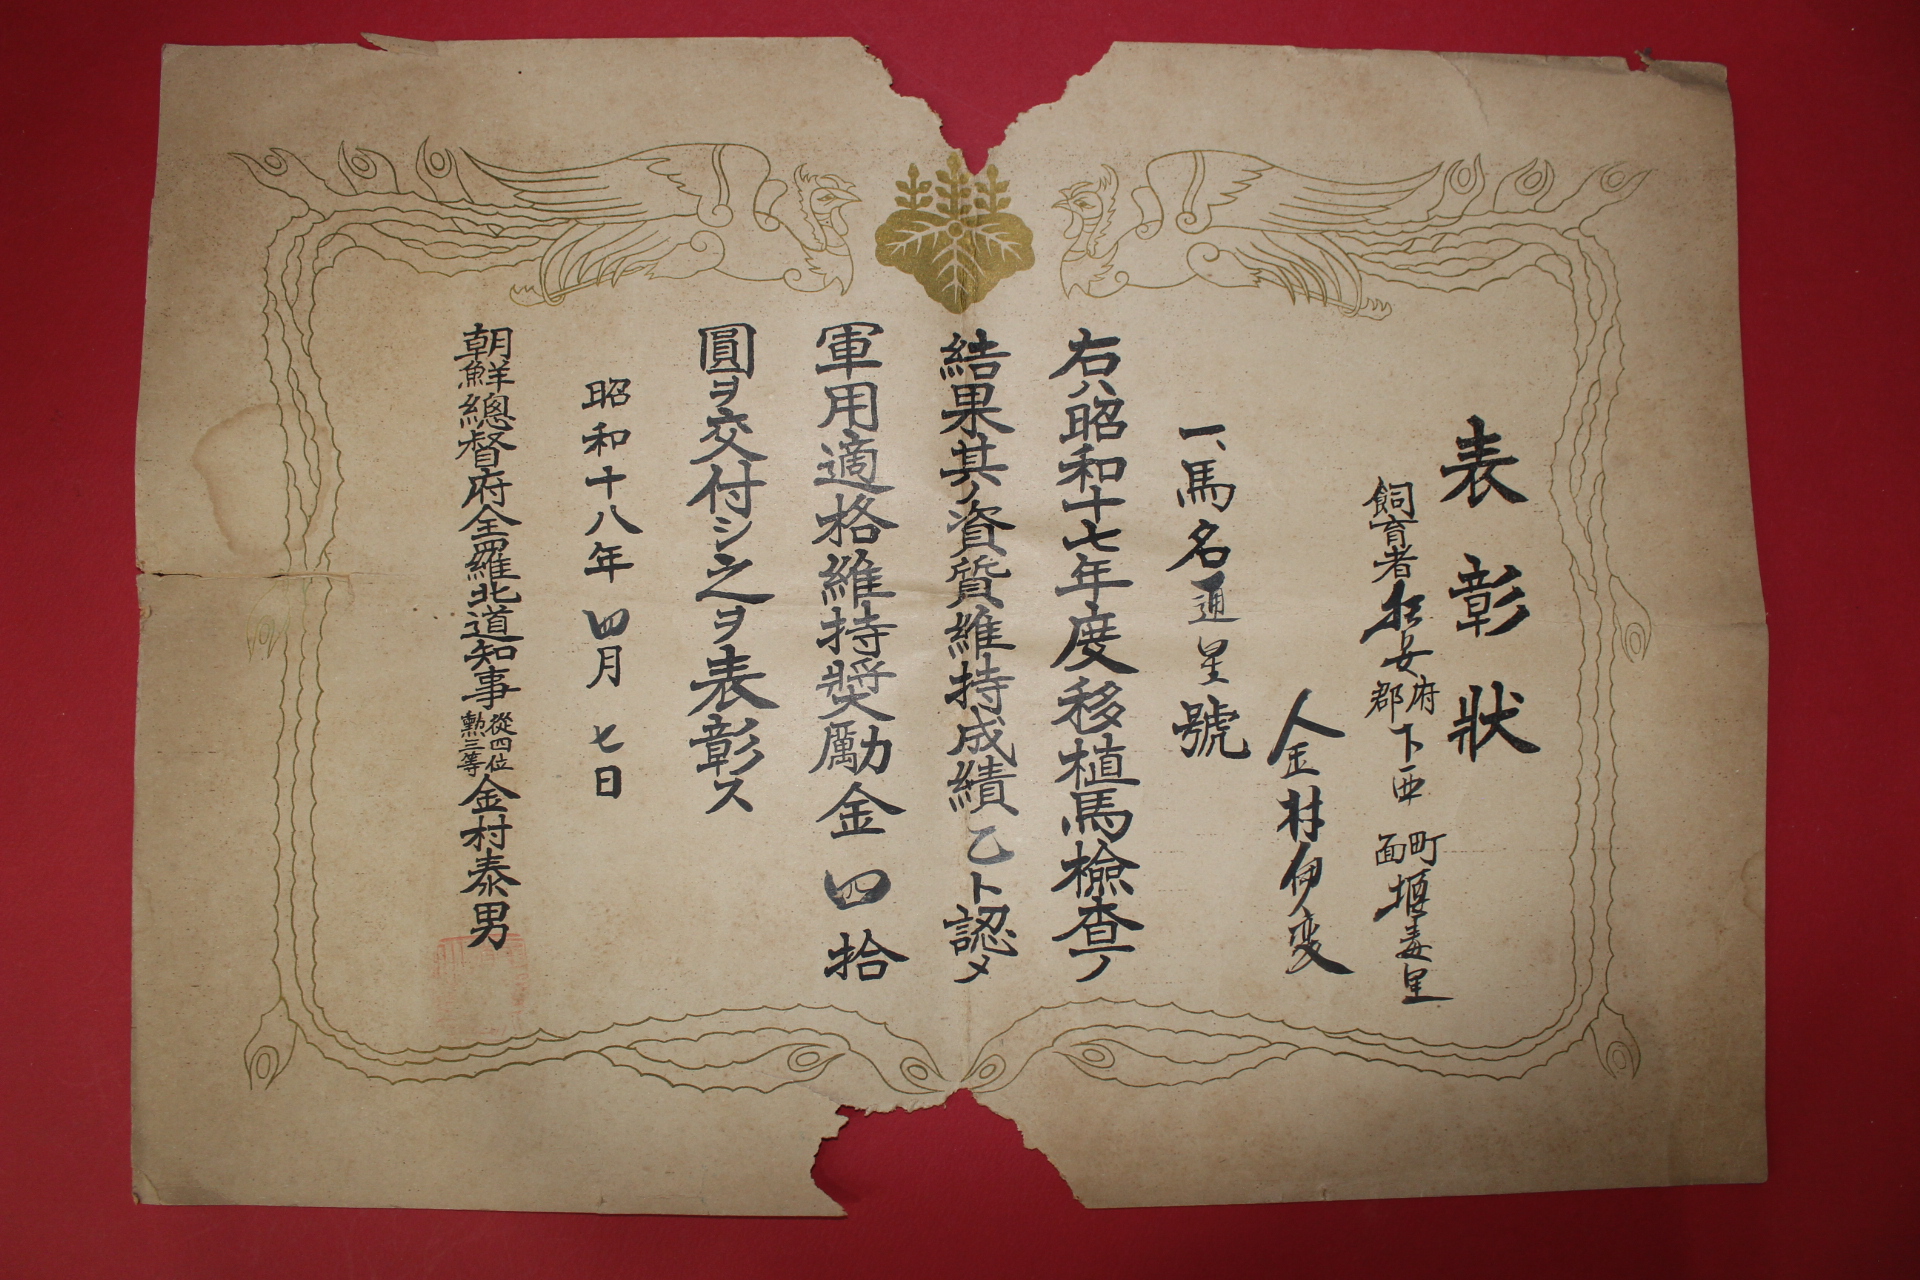 表彰狀
飼育者扶安府郡下西町面堰毒里
金村伊変
一、馬名通星號
右ハ昭和十七年度移植馬檢査ノ
結果其ノ資質維持成績乙ト認メ
軍用適格維持奬勵金四拾
圓ヲ交付シ之ヲ表彰ス
昭和十八年四月七日
朝鮮總督府全羅北道知事從四位勳三等金村泰男